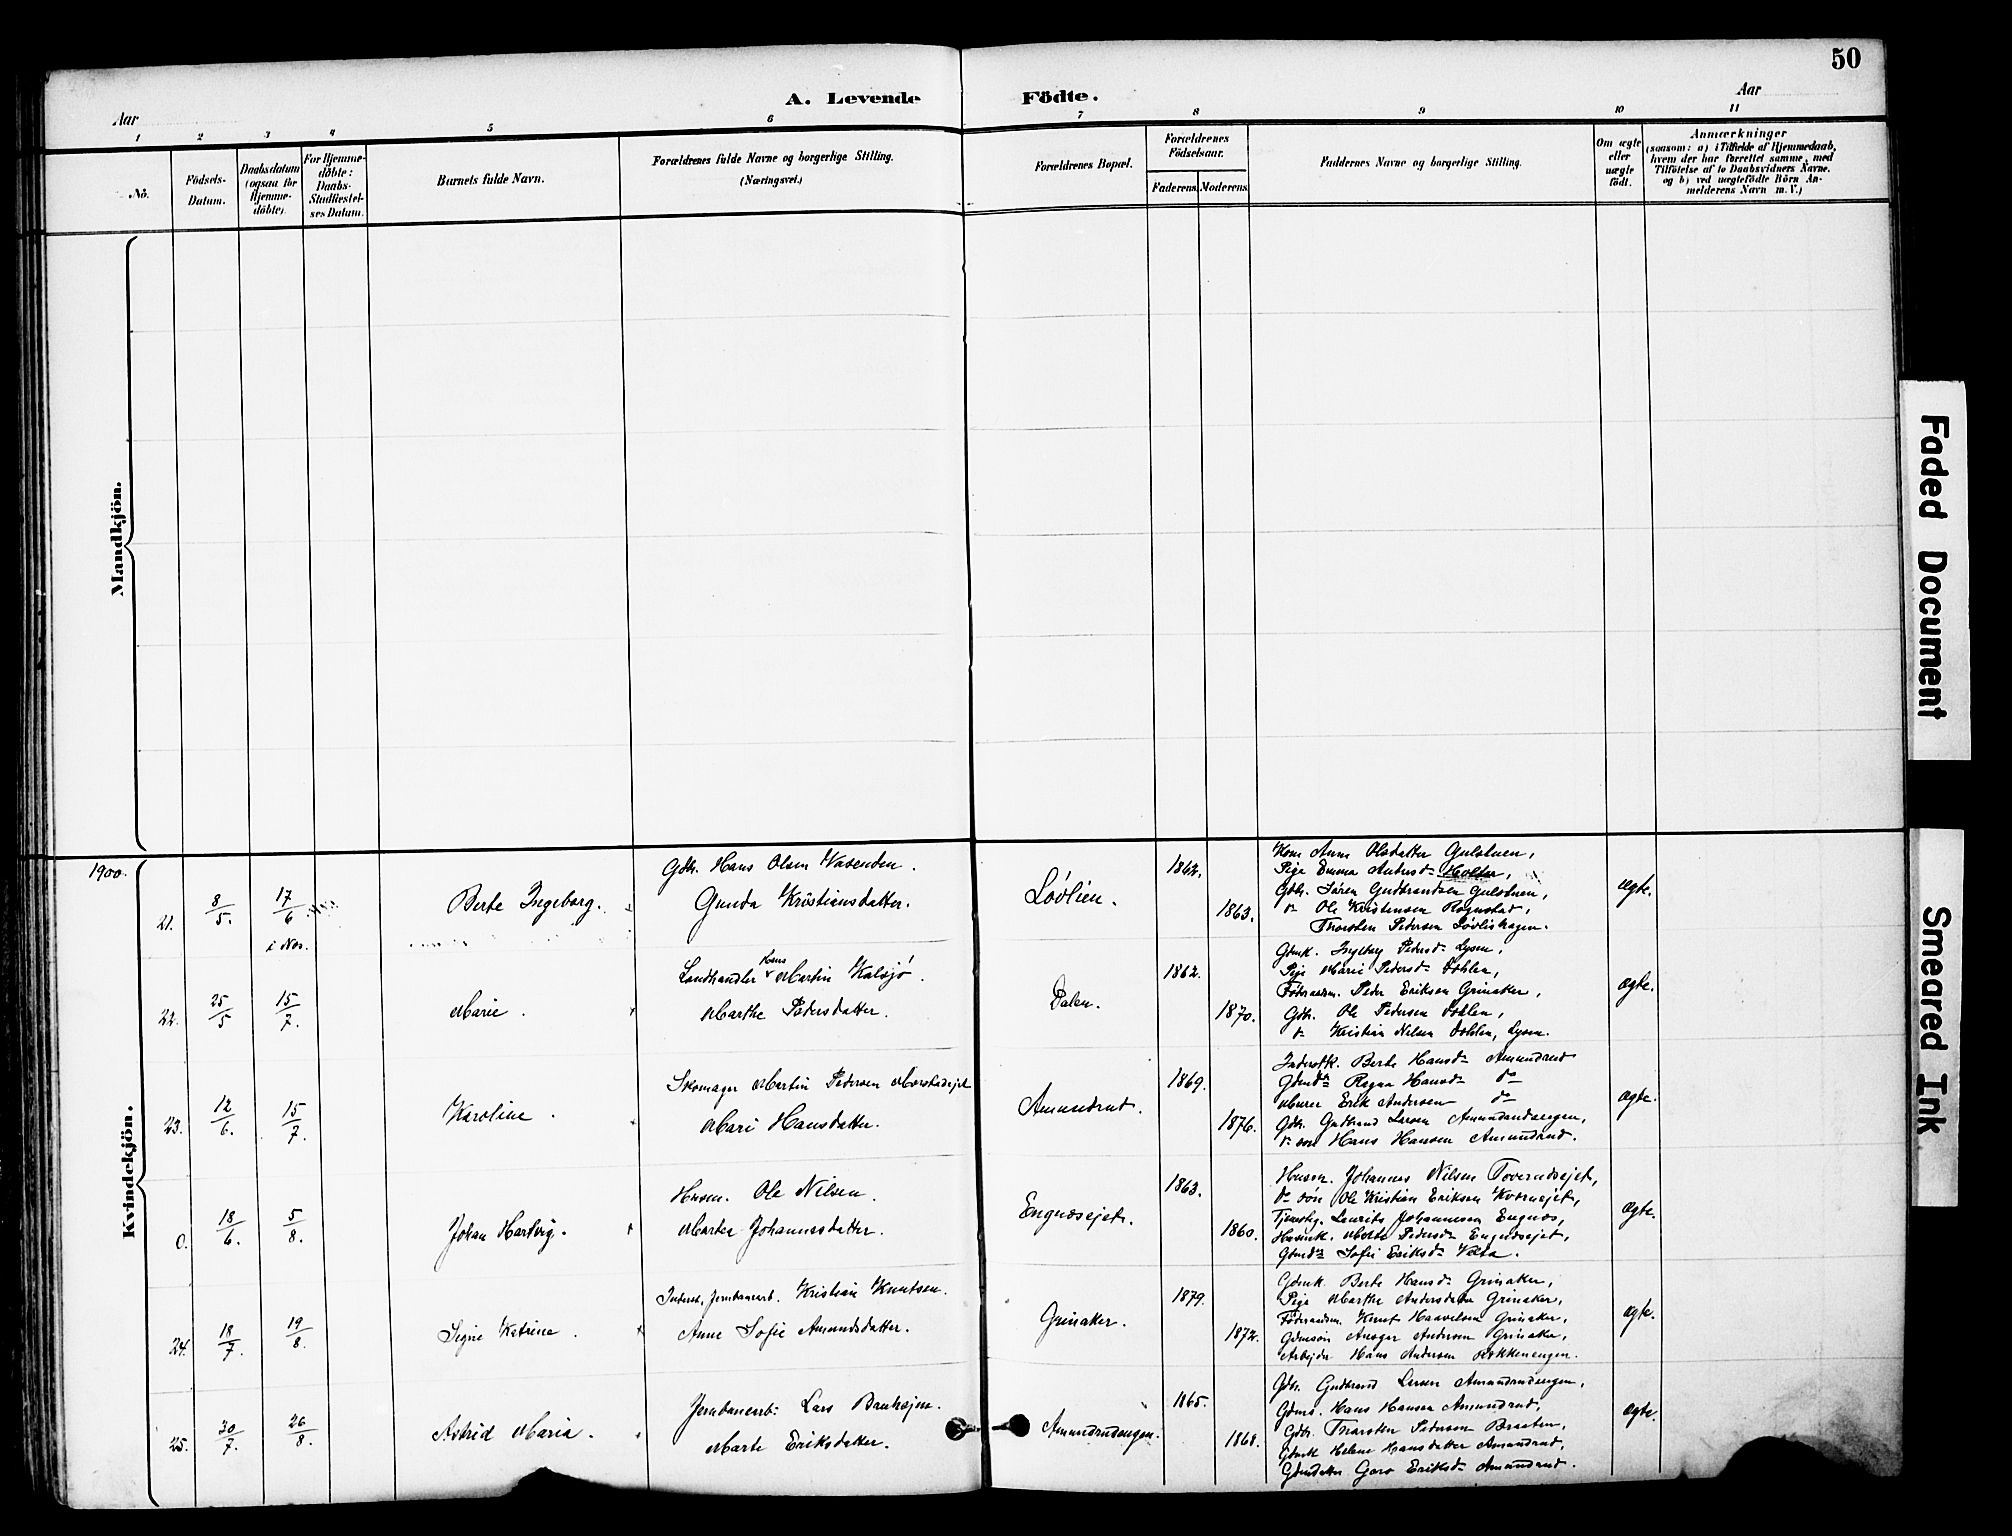 50
A. Levende Födte.
Aar
Aar
1 2 3 4 5 6 7 8 9 10 11
No.
Födsels-
Datum.
Daabsdatum
(ogsaa for
Hjemme-
döbte).
For Hjemme-
döbte:
Daabs-
Stadfæstel-
ses Datum.
Barnets fulde Navn.
Forældrenes fulde Navne og borgerlige Stilling.
(Næringsvei.)
Forældrenes Bopæl.
Forældrenes
Födselsaar.
Faderens.
Moderens.
Faddernes Navne og borgerlige Stilling.
Om ægte
eller
uægte
født.
Anmærkninger
(saasom: a) i Tilfælde af Hjemmedaab,
hvem der har forrettet samme, med
Tilføielse af to Daabsvidners Navne.
og b) ved uægtefödte Börn An-
melderens Navn m. V.)
Mandkjön.
Kvindekjön.
1900.
21.
8/5.
17/6
i Nes.
Berte Ingeborg.
Gdbr. Hans Olsen Vasenden.
Gunda Kristiansdatter.
Lövlien.
1862.
1863.
Kone Anne Olsdatter Gulstuen,
Pige Emma Andersd. Holter,
Gdbr. Sören Gudbrandsen Gulstuen,
do Ole Kristensen Rognstad,
Thorsten Pedersen Lövlishagen.
ægte.
22.
25/5
15/7.
Marie.
Landhandler Hans Martin Kalsjö.
Marthe Pedersdatter.
Dalen.
1862.
1870.
Gdmk. Ingeborg Pedersd. Lysen,
Pige Marie Pedersd. Dohlen,
Föderaadsm. Peder Eriksen Grinaker,
Gdbr. Ole Pedersen Dohlen,
do Kristian Nilsen Dohlen, Lysen.
ægte.
23.
12/6.
15/7.
Karoline.
Skomager Martin Pedersen Morstadejet
Mari Hansdatter.
Amundrud.
1869.
1876.
Inderstk. Berte Hansd. Amundrud
Gdmdtr Ragna Hansd. do
Murer Erik Andersen do
Gdbr. Gudbrand Larsen Amundrudengen,
do sön Hans Hansen Amundrud.
ægte.
0.
18/6.
5/8.
Johan Hartvig.
Husm. Ole Nilsen.
Marte Johannesdatter.
Engnæsejet.
1863.
1860.
Husm. Johannes Nilsen Toverudsejet,
do sön Ole Kristian Eriksen
Tjenestkg. Laurits Johannesen Engnæs,
Husmk. Marte Pedersd. Engnæsejet,
Gdmdtr Sofie Eriksd.
ægte.
24.
18/7.
19/8.
Signe Katrine.
Inderst, Jernbanearb. Kristian Knutsen.
Anne Sofie Amundsdatter.
Grinaker.
1879.
1872.
Gdmk. Berte Hansd. Grinaker,
Pige Marthe Andersdatter Grinaker,
Föderaadsm. Knut Haavelsen Grinaker,
Gdmsön Ansgar Andersen Grinaker,
Arbejder Hans Andersen Rækkenengen.
ægte.
25.
30/7.
26/8.
Astrid Maria.
Jernbanearb: Lars
Marte Eriksdatter.
Amundrudengen.
1865.
1868.
Gdbr. Gudbrand Larsen Amundrudengen,
Gdms. Hans Hansen Amundrud,
Gdbr. Thorsten Pedersen Braaten,
Gdmk Helene Hansdatter Amundrud,
Gdmdatter Goro Eriksd. Amundrud.
ægte.
Faded Document
Smeared Ink